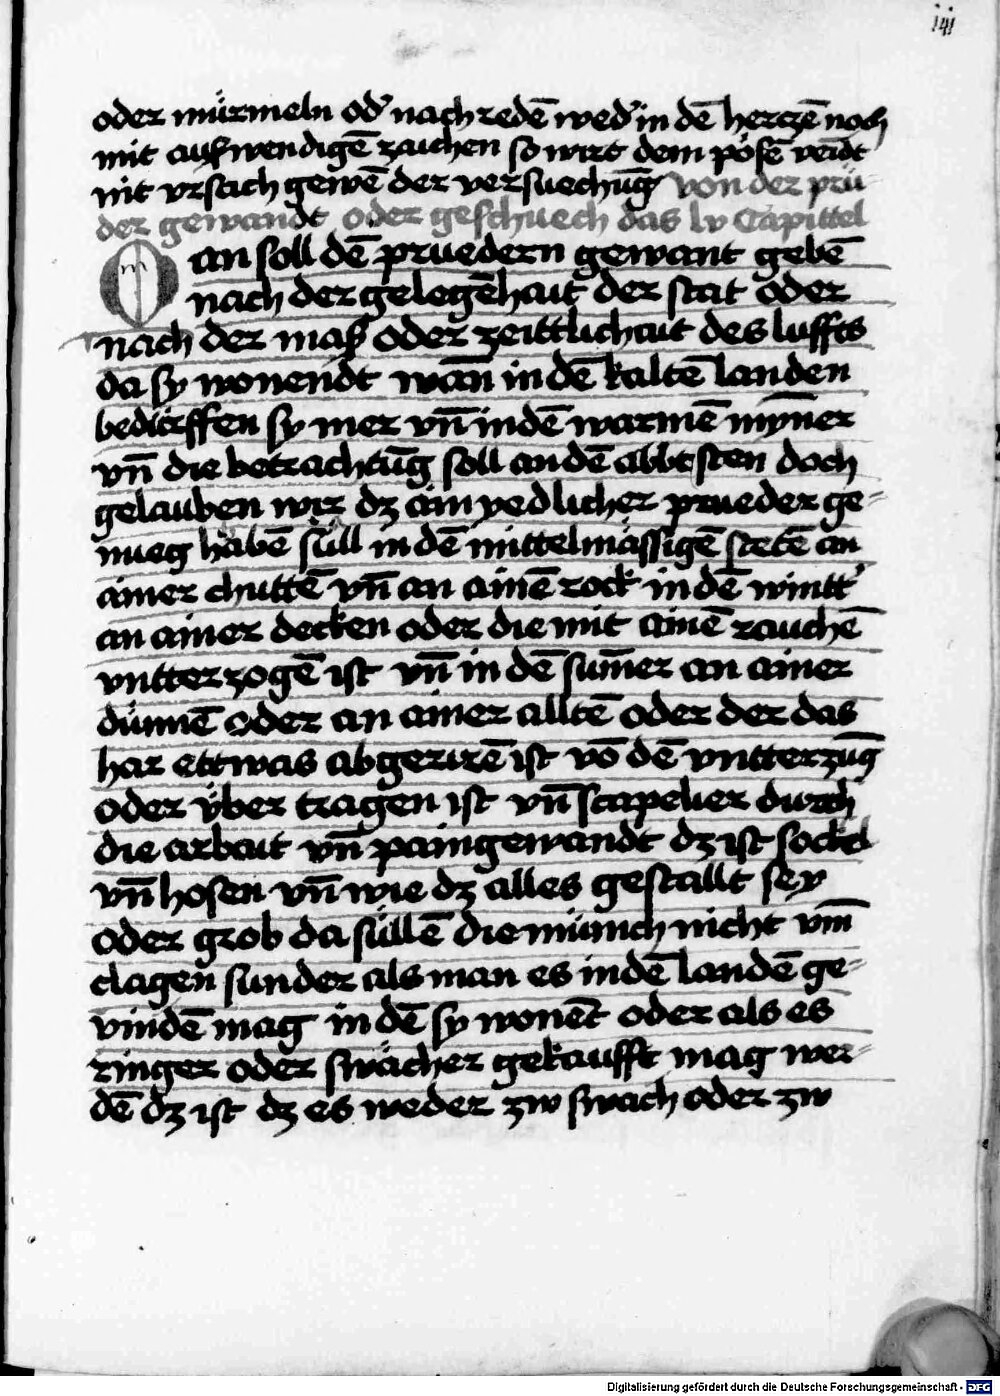 iij
oder mürmeln od' nach redē wed' in dē herczē noch
mit auswendigē zaichen so wirt dem pösē veīdt
nit vrsach gewē der versuechūg von der prü-
der gewandt oder geschuech das lv Capittel
Man soll dē pruedern gewant gebē
nach der gelegēhait der stat oder
nach der mass oder zeittlichait des luffts
da sy wonendt wan̄ in dē kaltē landen
bedürffen sy mer vn̄ in dē warmē myn̄er
vn̄ die betrachtūg soll an dē abbtsten doch
gelauben wir dz äin yedlicher prueder ge-
nueg habē süll in dē mittelmässigē stetē an
ainer chuttē vn̄ an ainē rock in dē wintt'
an ainer decken oder die mit ainē rauchē
vntter zogē ist vn̄ in dē sum̄er an ainer
dünnē oder an ainer alltē oder der das
har ettwas abgerirē ist vō dē vntterzūg
oder über tragen ist vn̄ scapelier durch
die arbait vn̄ paingewandt dz ist sockel
vn̄ hosen vn̄ wie dz alles gestallt sey
oder grob da süllē die münich nicht vm̄
clagen sunder als man es in dē landē ge-
vindē mag in dē sy wonēt oder als es
ringer oder swächer gekaufft mag wer-
dē dz ist dz es weder zw swach oder zw
Digitalisierung gefördert durch die Deutsche Forschungsgemeinschaft - DFG